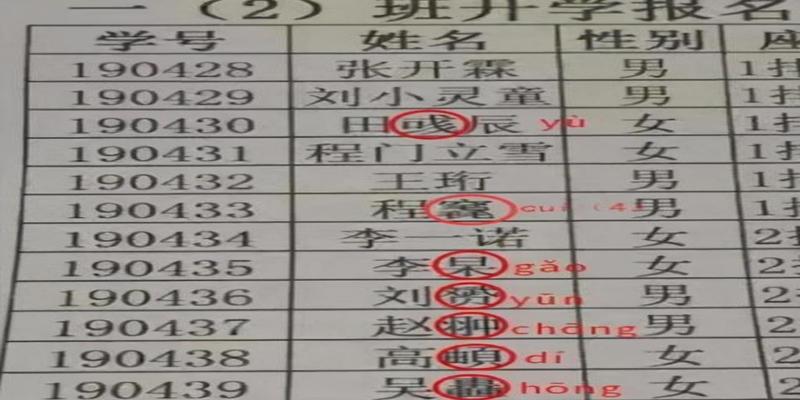 一（2）班开学报名
学号 姓名 性别 座
190428 张开霖 男 1
190429 刘小灵童 男 1
190430 田彧辰 yù 女 1
190431 程门立雪 女 1
190432 王珩 男 1
190433 程竁 cuì（4 男 1
190434 李一诺 女 2
190435 李杲 gǎo 女 2
190436 刘赟 yūn 男 2
190437 赵翀 chōng 男 2
190438 高頔 dí 女 2
190439 吴 hōng 女 2